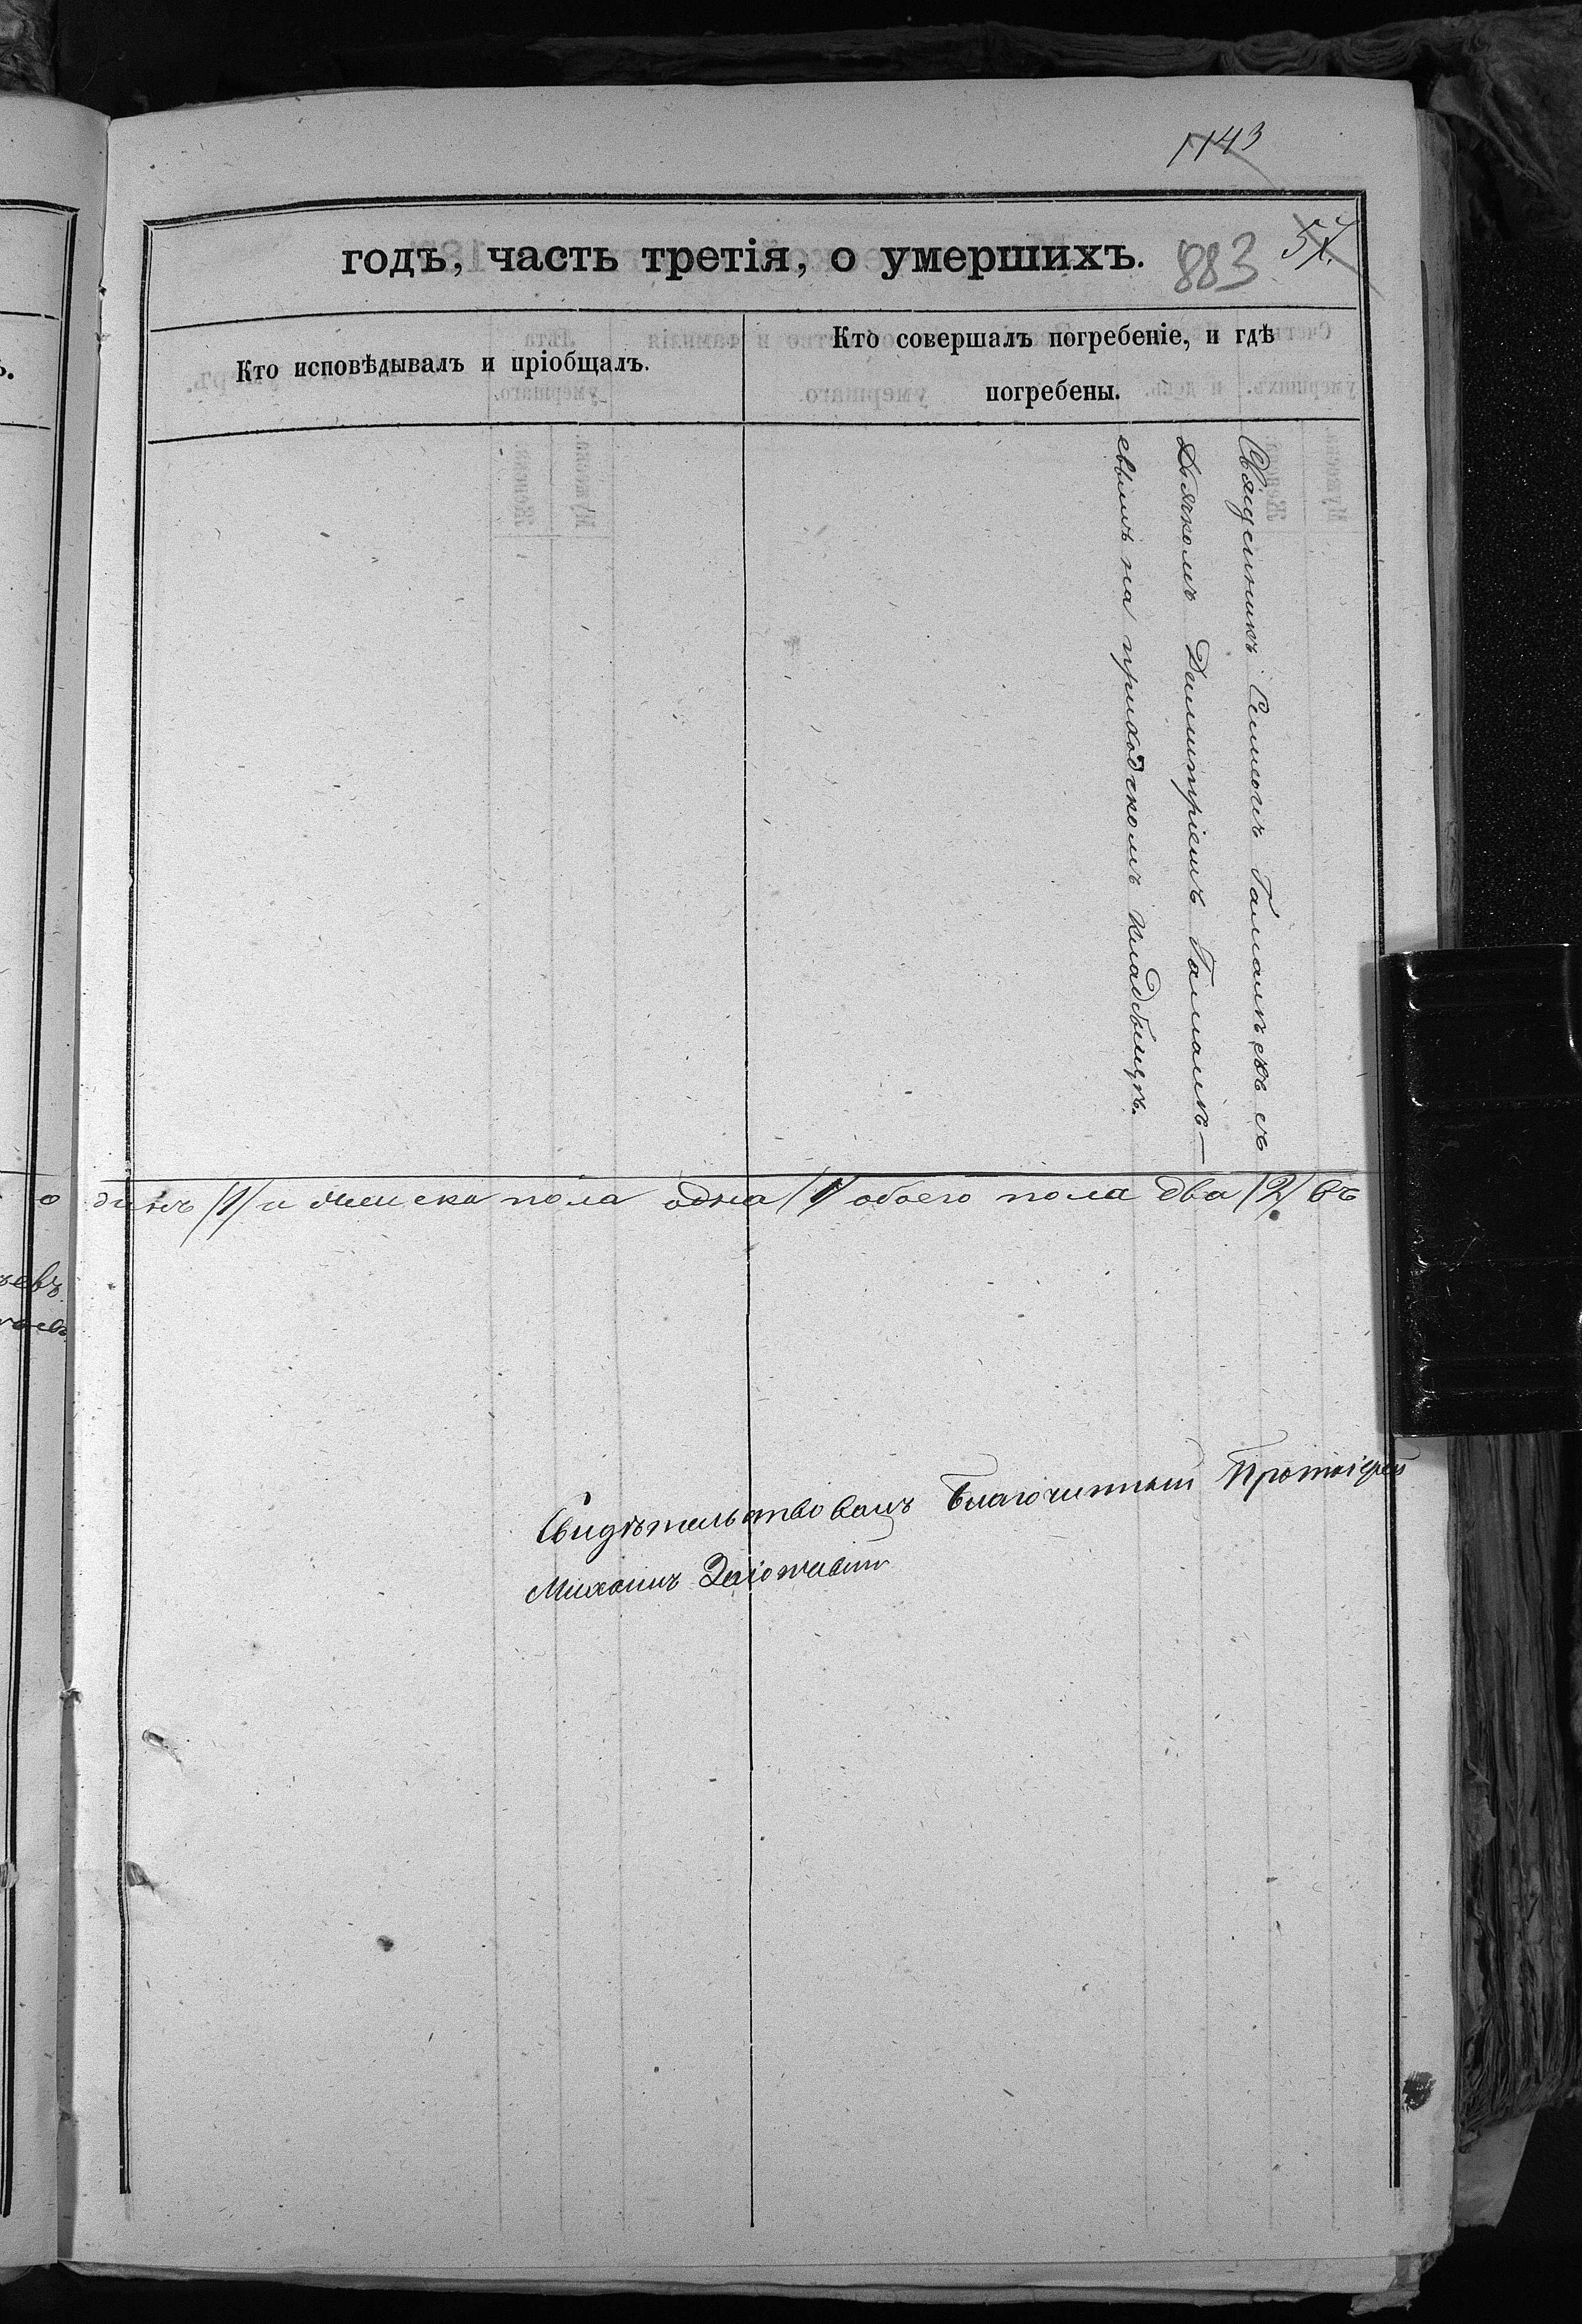 1143
годъ, часть третія, о умершихъ.
883
57.
Кто исповѣдывалъ и пріобщалъ.
Кто совершалъ погребеніе, и гдѣ
погребены.
Священникъ Симеонъ съ
Дьячкомъ Димитріемъ
евымъ на приходскомъ кладбищѣ.
о динъ /1/ и женска пола одна /1/ обоего пола два /2/ въ
Свидѣтельствовалъ Благочинный Протоіерей
Михаилъ